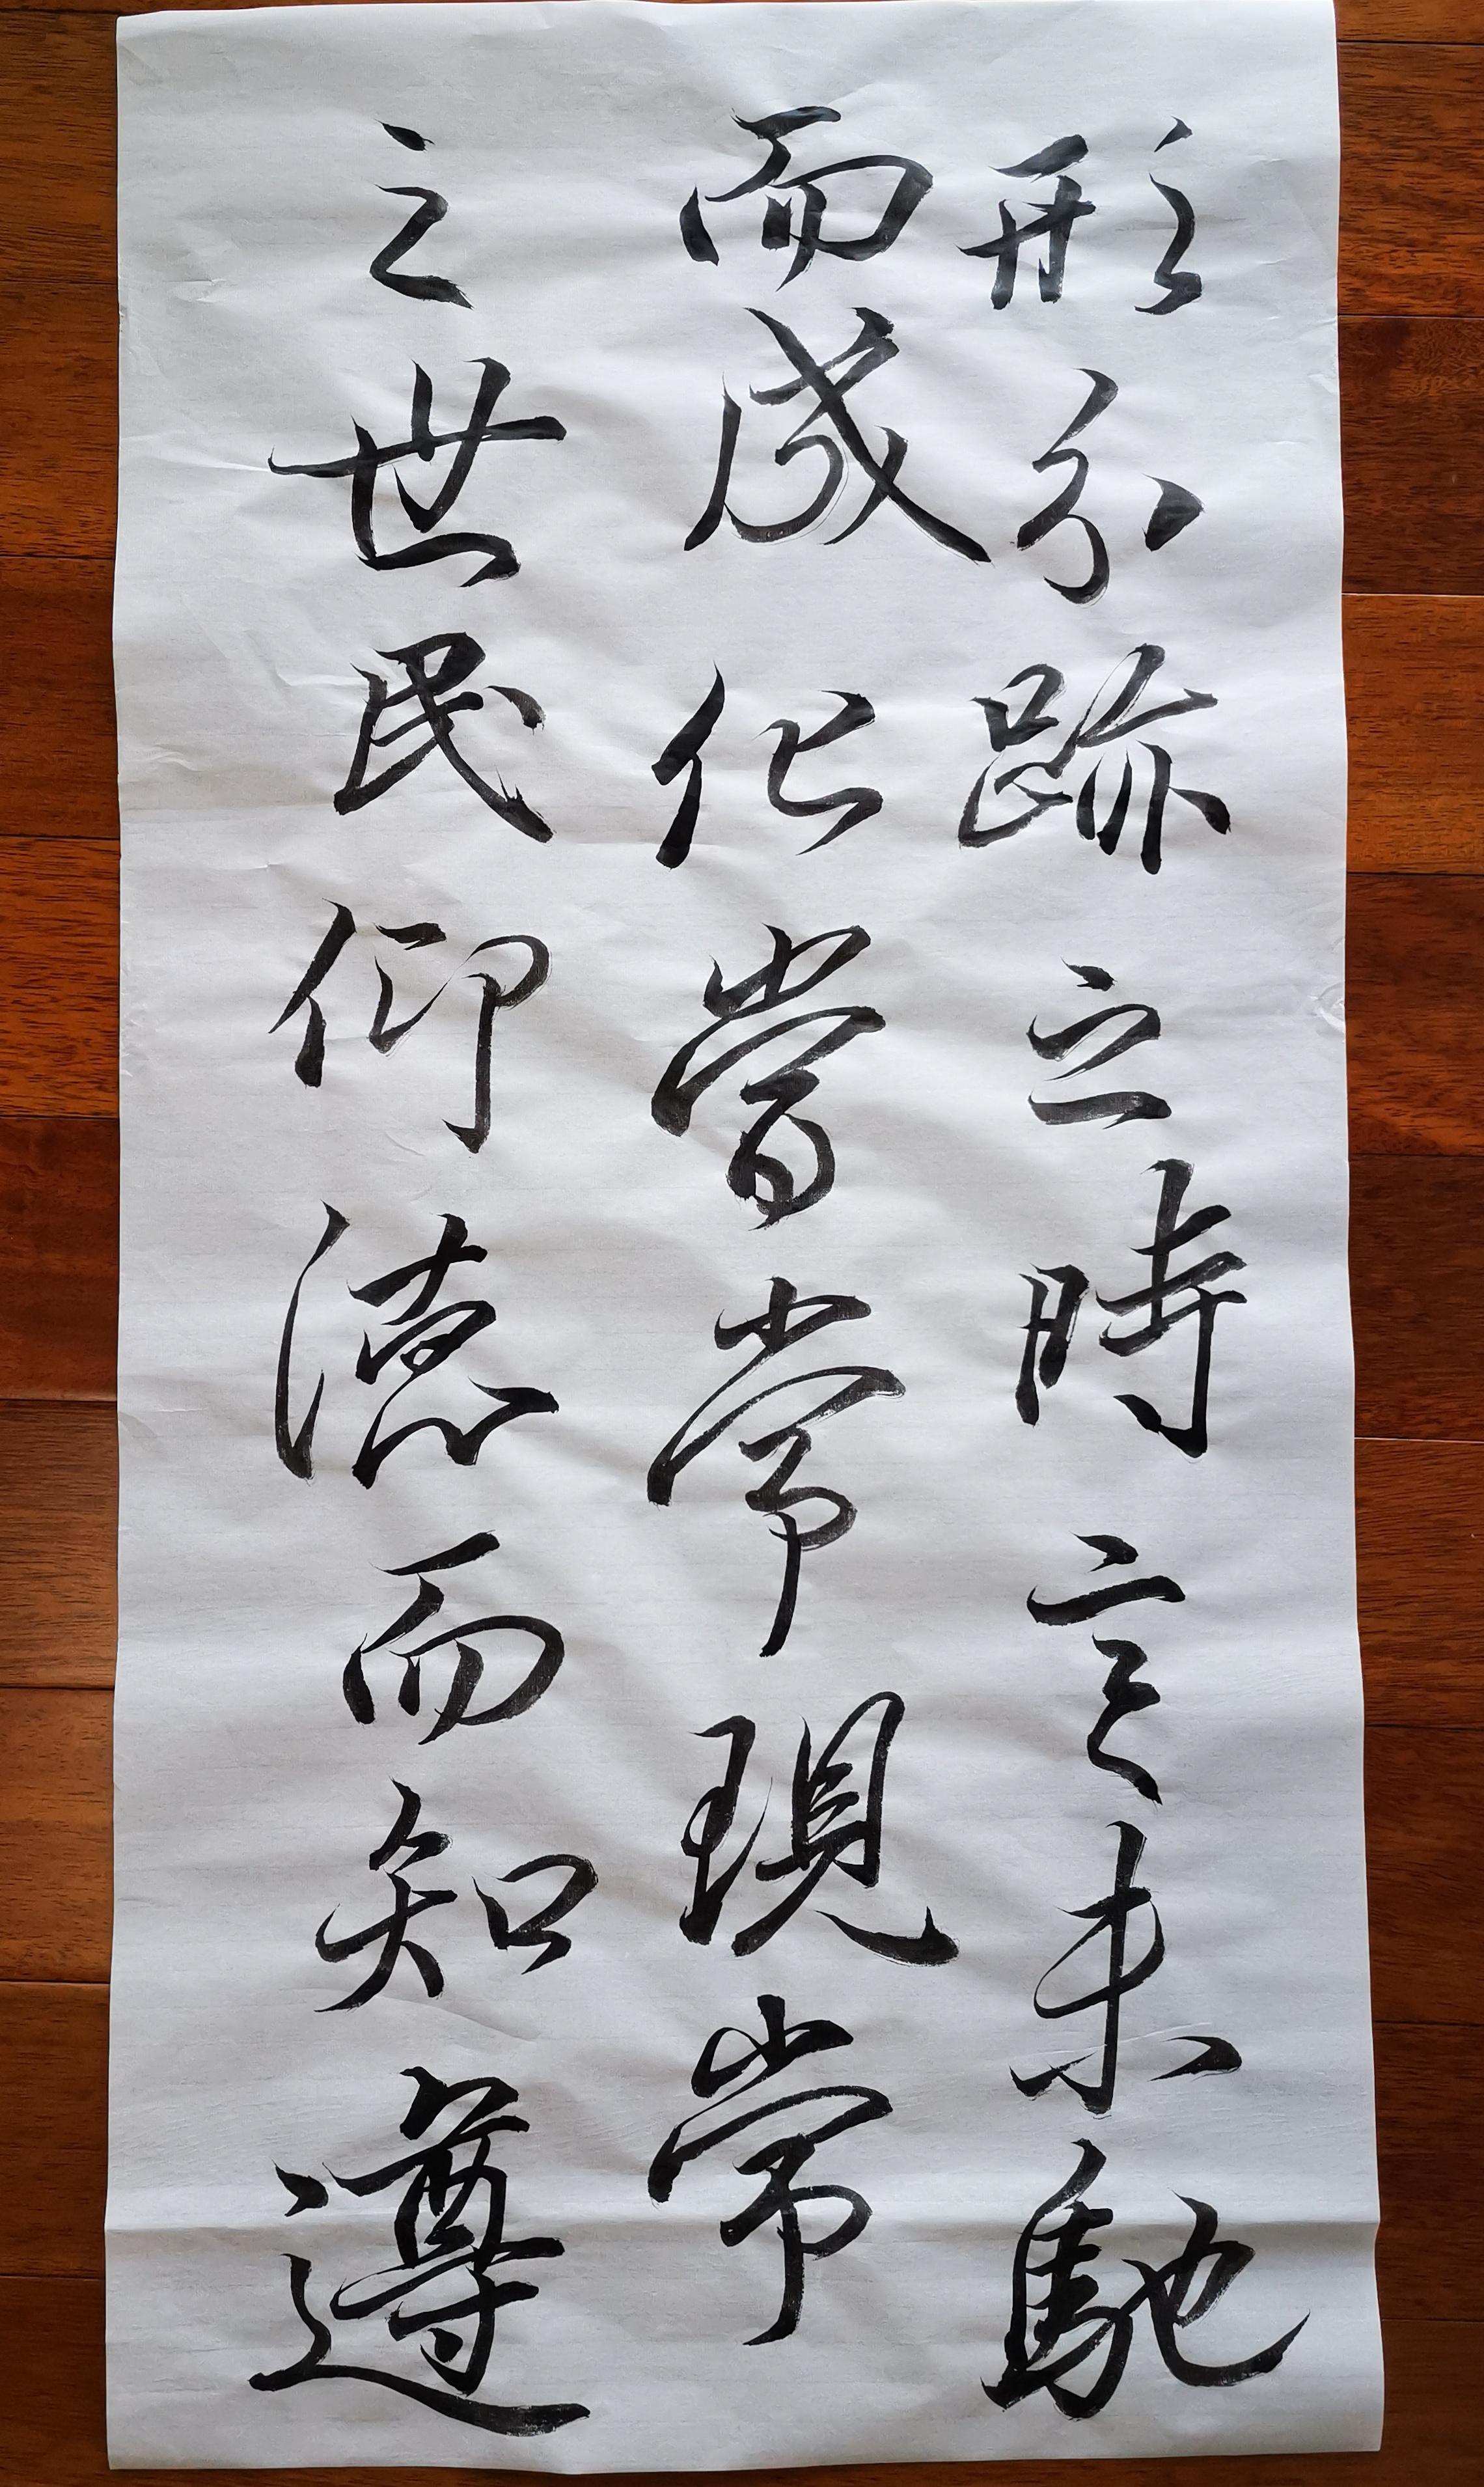 形分跡之時言未馳
而成化當常現常
之世民仰德而知遵